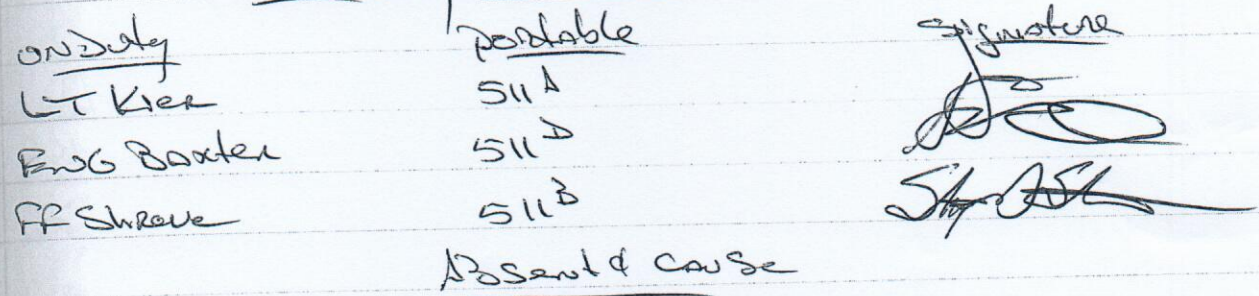 ON Duty portable Signature
LT Kier 511 A
ENG Baxter 511 D
FF Shrove 511 B
Absent & Cause